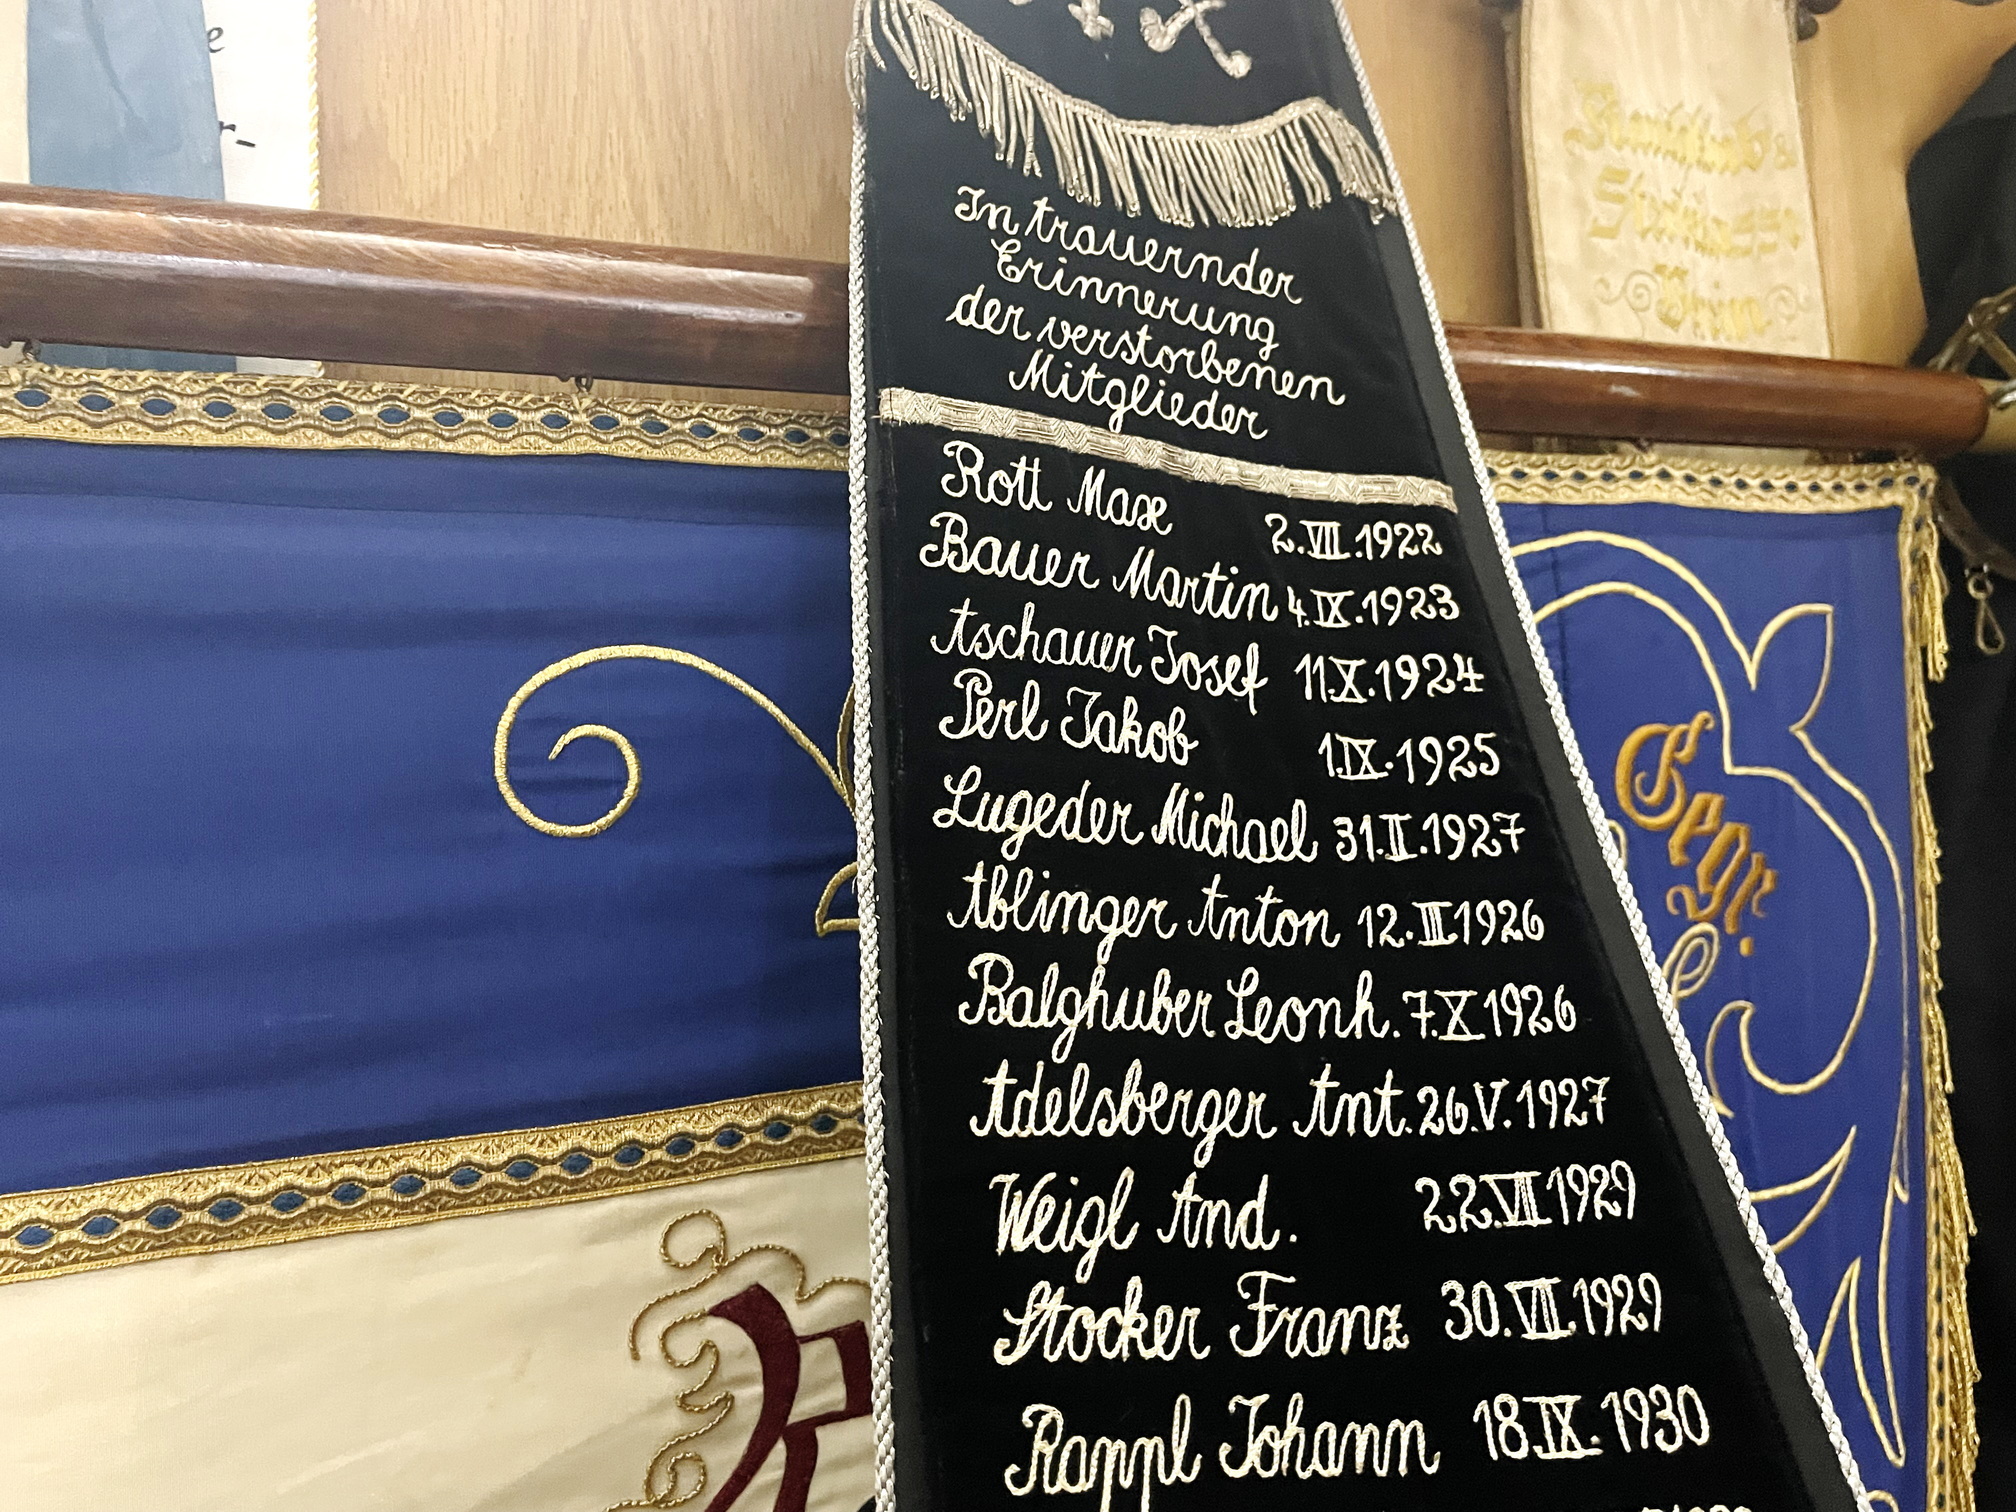 In trauernder
Erinnerung
der verstorbenen
Mitglieder
Rott Max 2.VII.1922
Bauer Martin 4.IX.1923
Aschauer Josef 11.X.1924
Perl Jakob 1.IX.1925
Lugeder Michael 31.II.1927
Ablinger Anton 12.III1926
Balghuber Leonh. 7.X1926
Adelsberger Ant. 26.V.1927
Weigl And. 22.VII1929
Stocker Franz 30.VII.1929
Rappl Johann 18.IX.1930
Gegr.